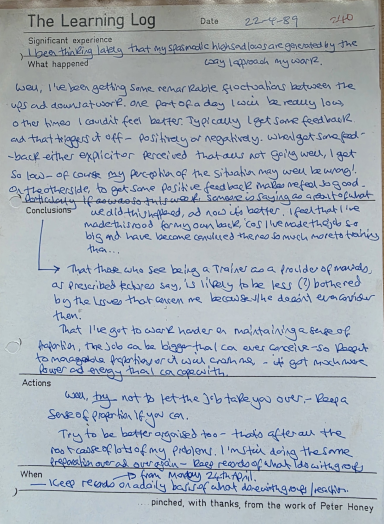 The Learning Log Date 22-4-89 240
Significant experience
I been thinking lately that my spasmodic highs and lows are generated by the
What happened way I approach my work.
Well, I've been getting some remarkable fluctuations between the
ups and downs at work. One part of a day I will be really low,
other times I couldn't feel better. Typically I get some feedback
and that triggers it off - positively or negatively. When I get some feed-
-back either explicit or perceived that all's not going well, I get
so low - of course my perception of the situation may well be wrong!
On the other side, to get some positive feedback makes me feel so good.
Particularly if as was so this week, someone is saying as a result of what
Conclusions we did this happened, and now it's better. I feel that I've
made this rod for my own back 'cos I've made the job so
big and have become convinced there's so much more to training
than...
That those who see being a Trainer as a provider of
as prescribed lectures say, is likely to be less (?) bothered
by the issues that concern me because s/he doesn't even consider
them.
That I've got to work harder on maintaining a sense of
proportion, the job can be bigger that I can ever conceive - so keep it
to manageable proportions or it will crush me - it's got much more
power and energy that I can cope with.
Actions
Well, try - not to let the job take you over - keep a
sense of proportion if you can.
Try to be better organised too - that's after all the
root cause of lots of my problems. I'm still doing the same
preparation over and over again - keep records of what I do with groups
When from Monday 24th April.
I keep records on a daily basis of what done with group / reaction.
pinched, with thanks, from the work of Peter Honey